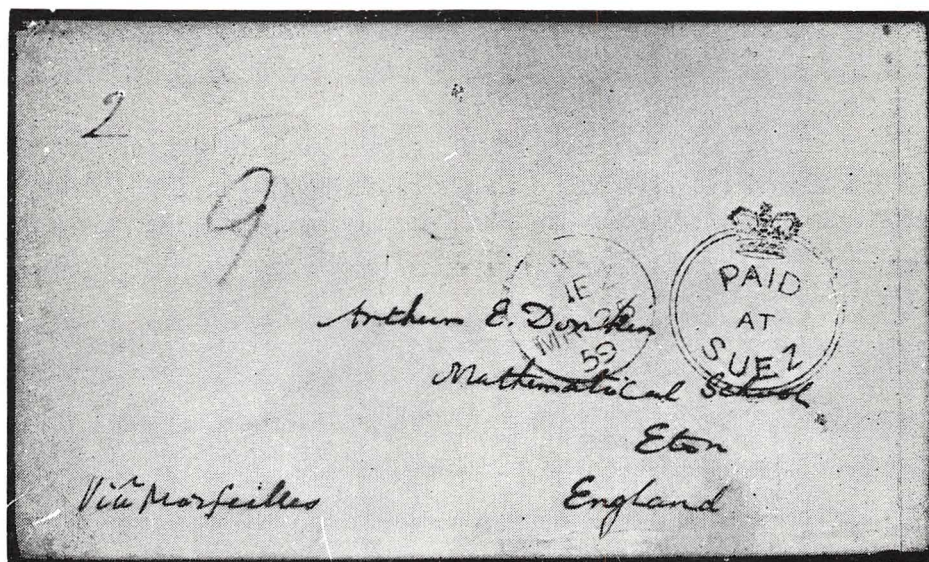 2
9
PAID
AT
SUEZ
59
Arthur E. Donkin
Mathematical School
Eton
England
Viâ Marseilles